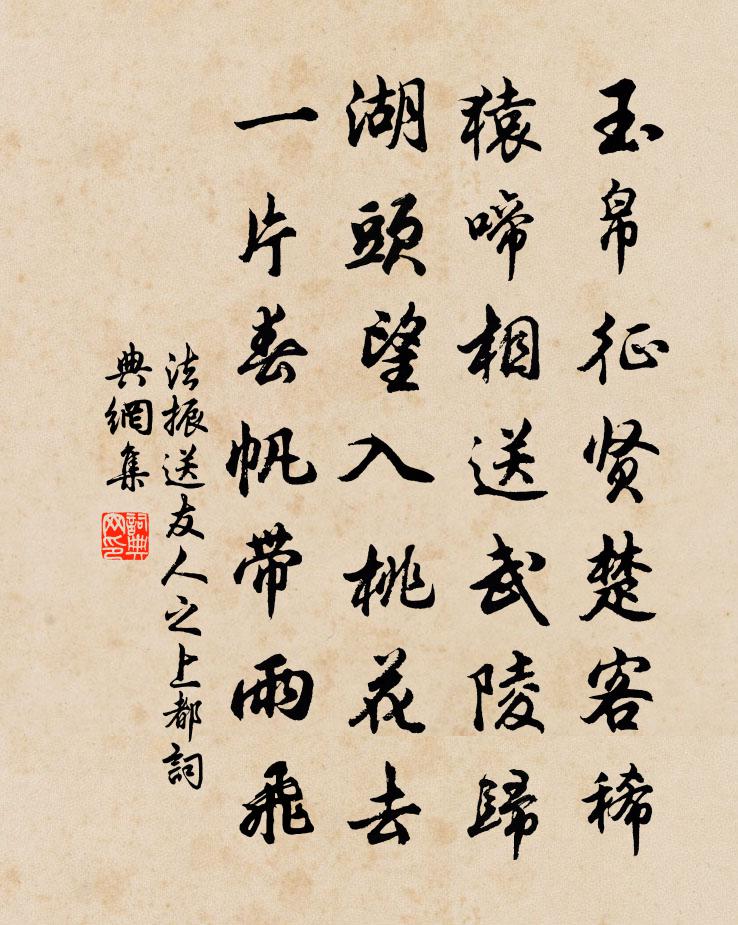 玉帛征贤楚客稀
猿啼相送武陵歸
湖頭望入桃花去
一片春帆帶雨飛
法振送友人之上都詞
典網集
詞典
网印